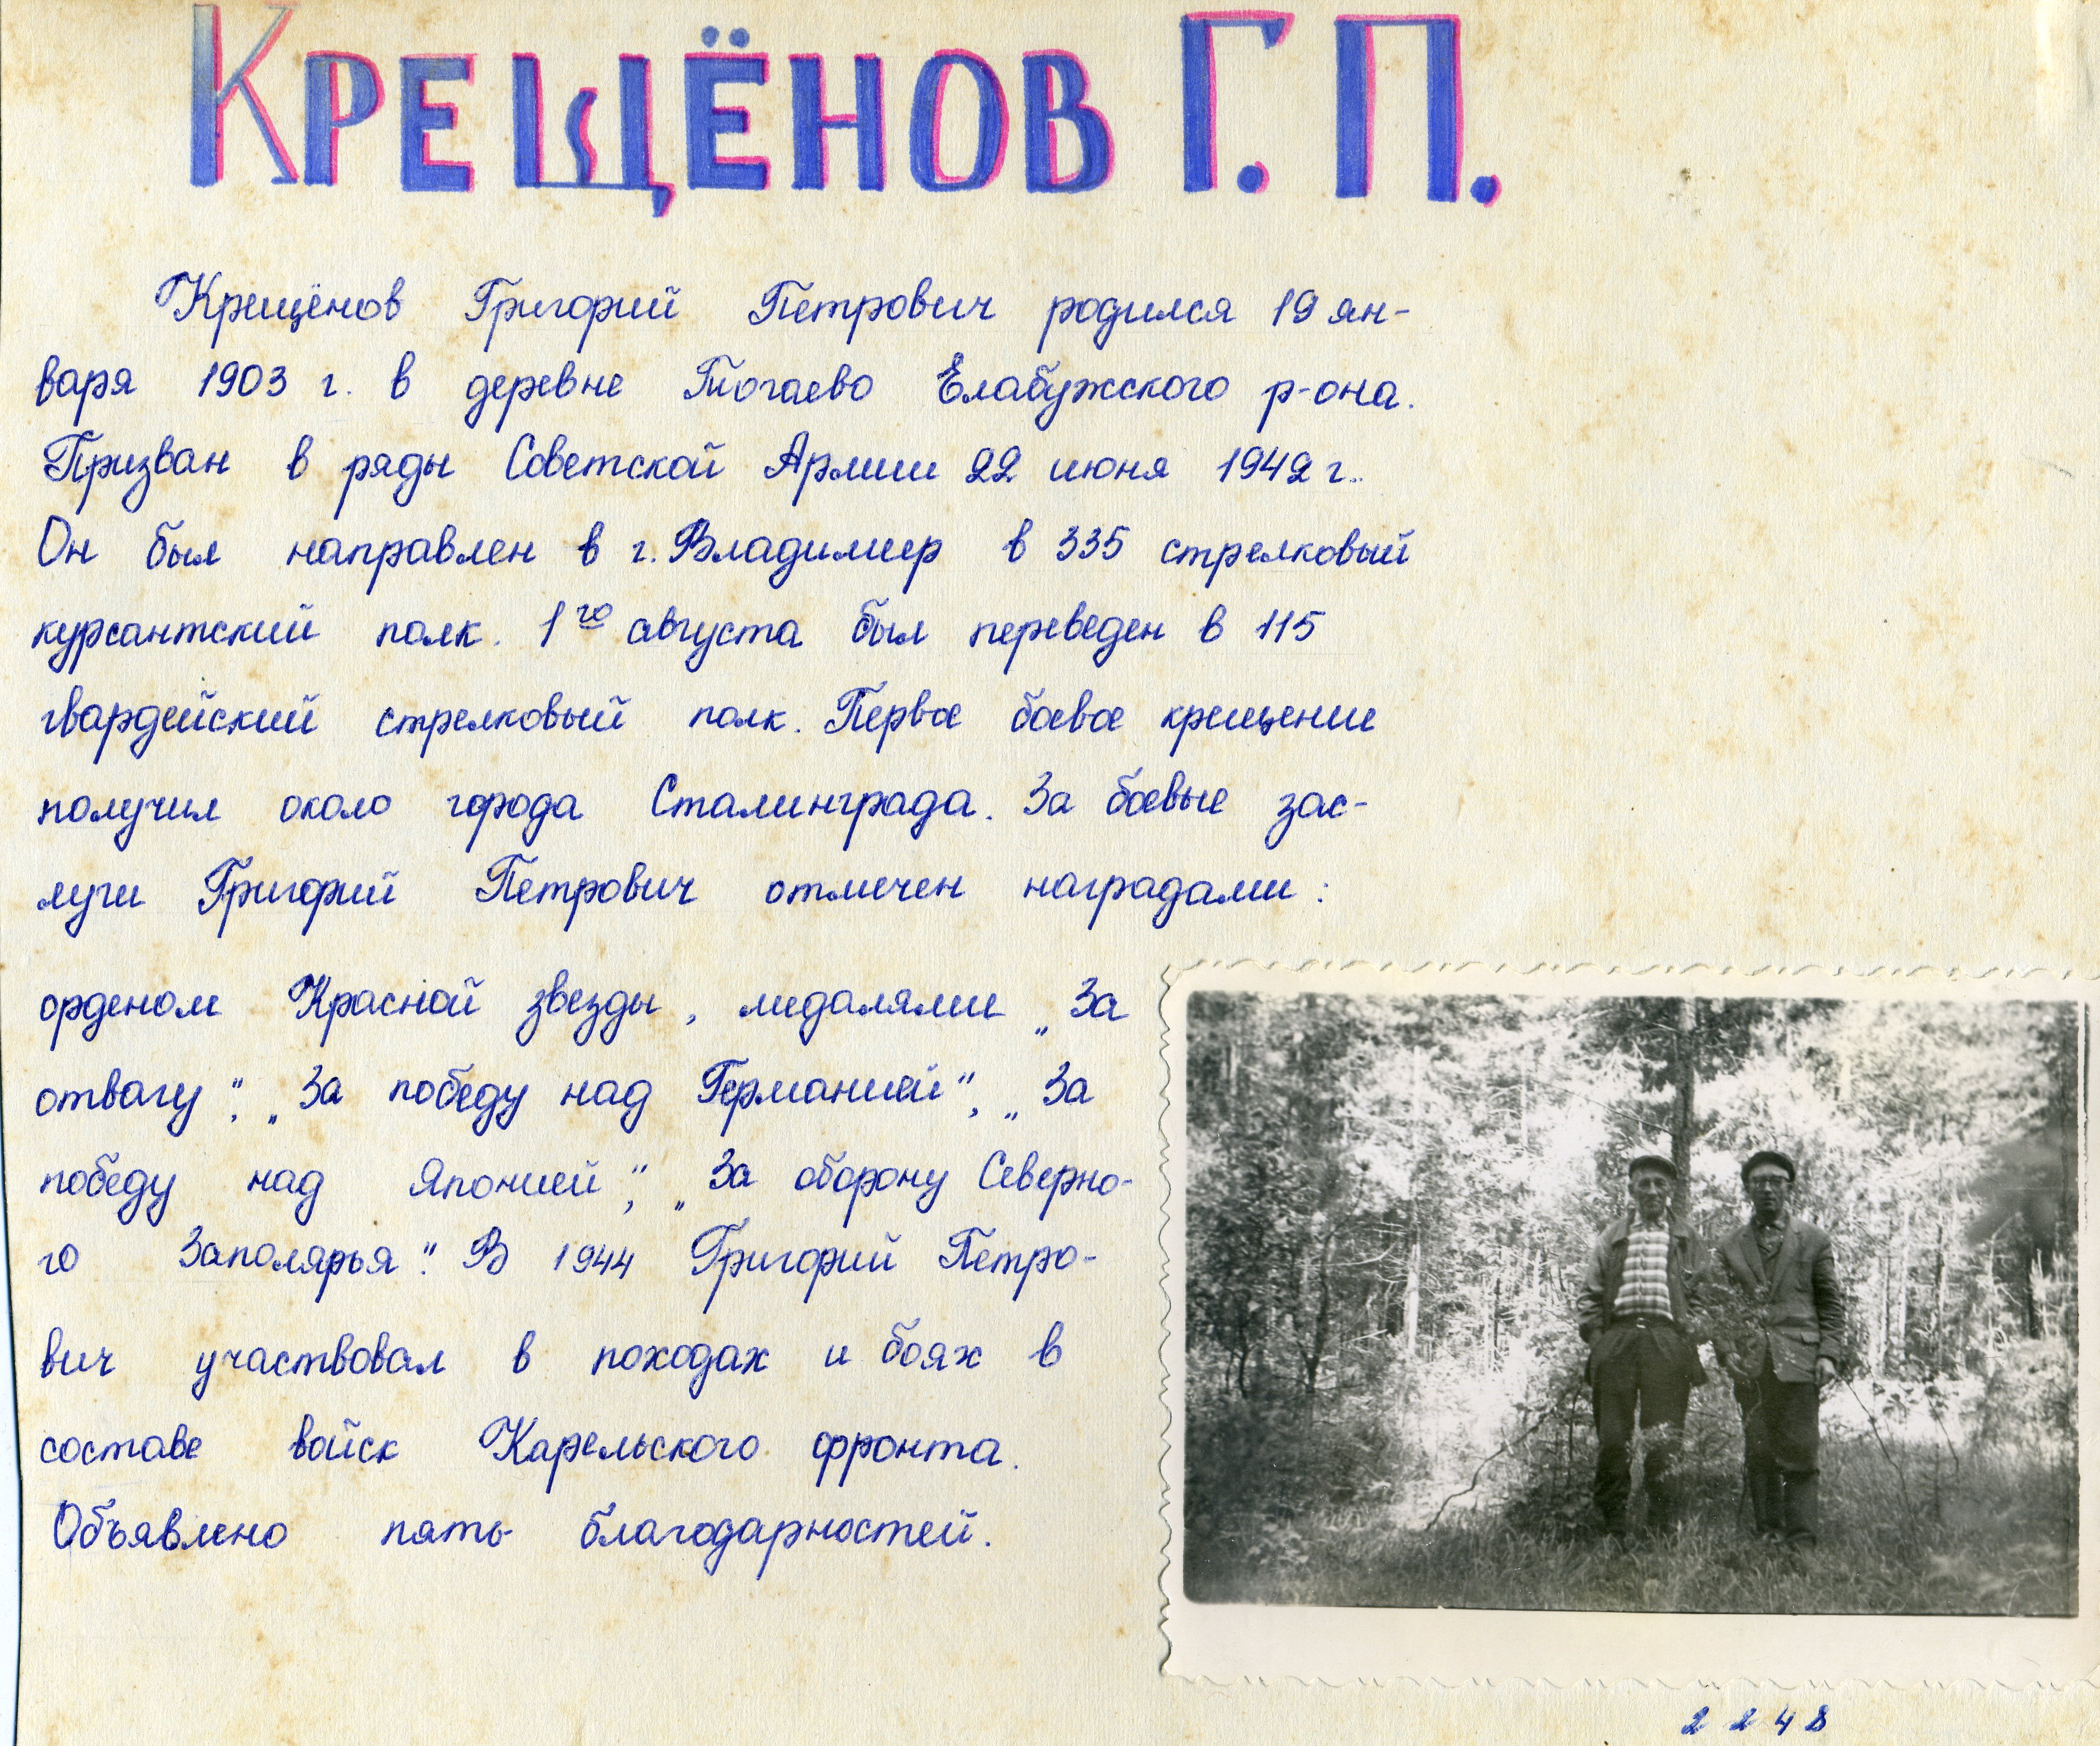 КРЕЩЁНОВ Г. П.
Крещёнов Григорий Петрович родился 19 ян-
варя 1903 г. в деревне Тогаево Елабужского р-она.
Призван в ряды Советской Армии 22 июня 1942 г..
Он был направлен в г. Владимир в 335 стрелковый
курсантский полк. 1го августа был переведен в 115
гвардейский стрелковый полк. Первое боевое крещение
получил около города Сталинграда. За боевые зас-
луги Григорий Петрович отмечен наградами:
орденом Красной звезды, медалями „За
отвагу“, „За победу над Германией“, „За
победу над Японией“, „За оборону Северно-
го Заполярья“. В 1944 Григорий Петро-
вич участвовал в походах и боях в
составе войск Карельского фронта.
Объявлено пять благодарностей.
2248